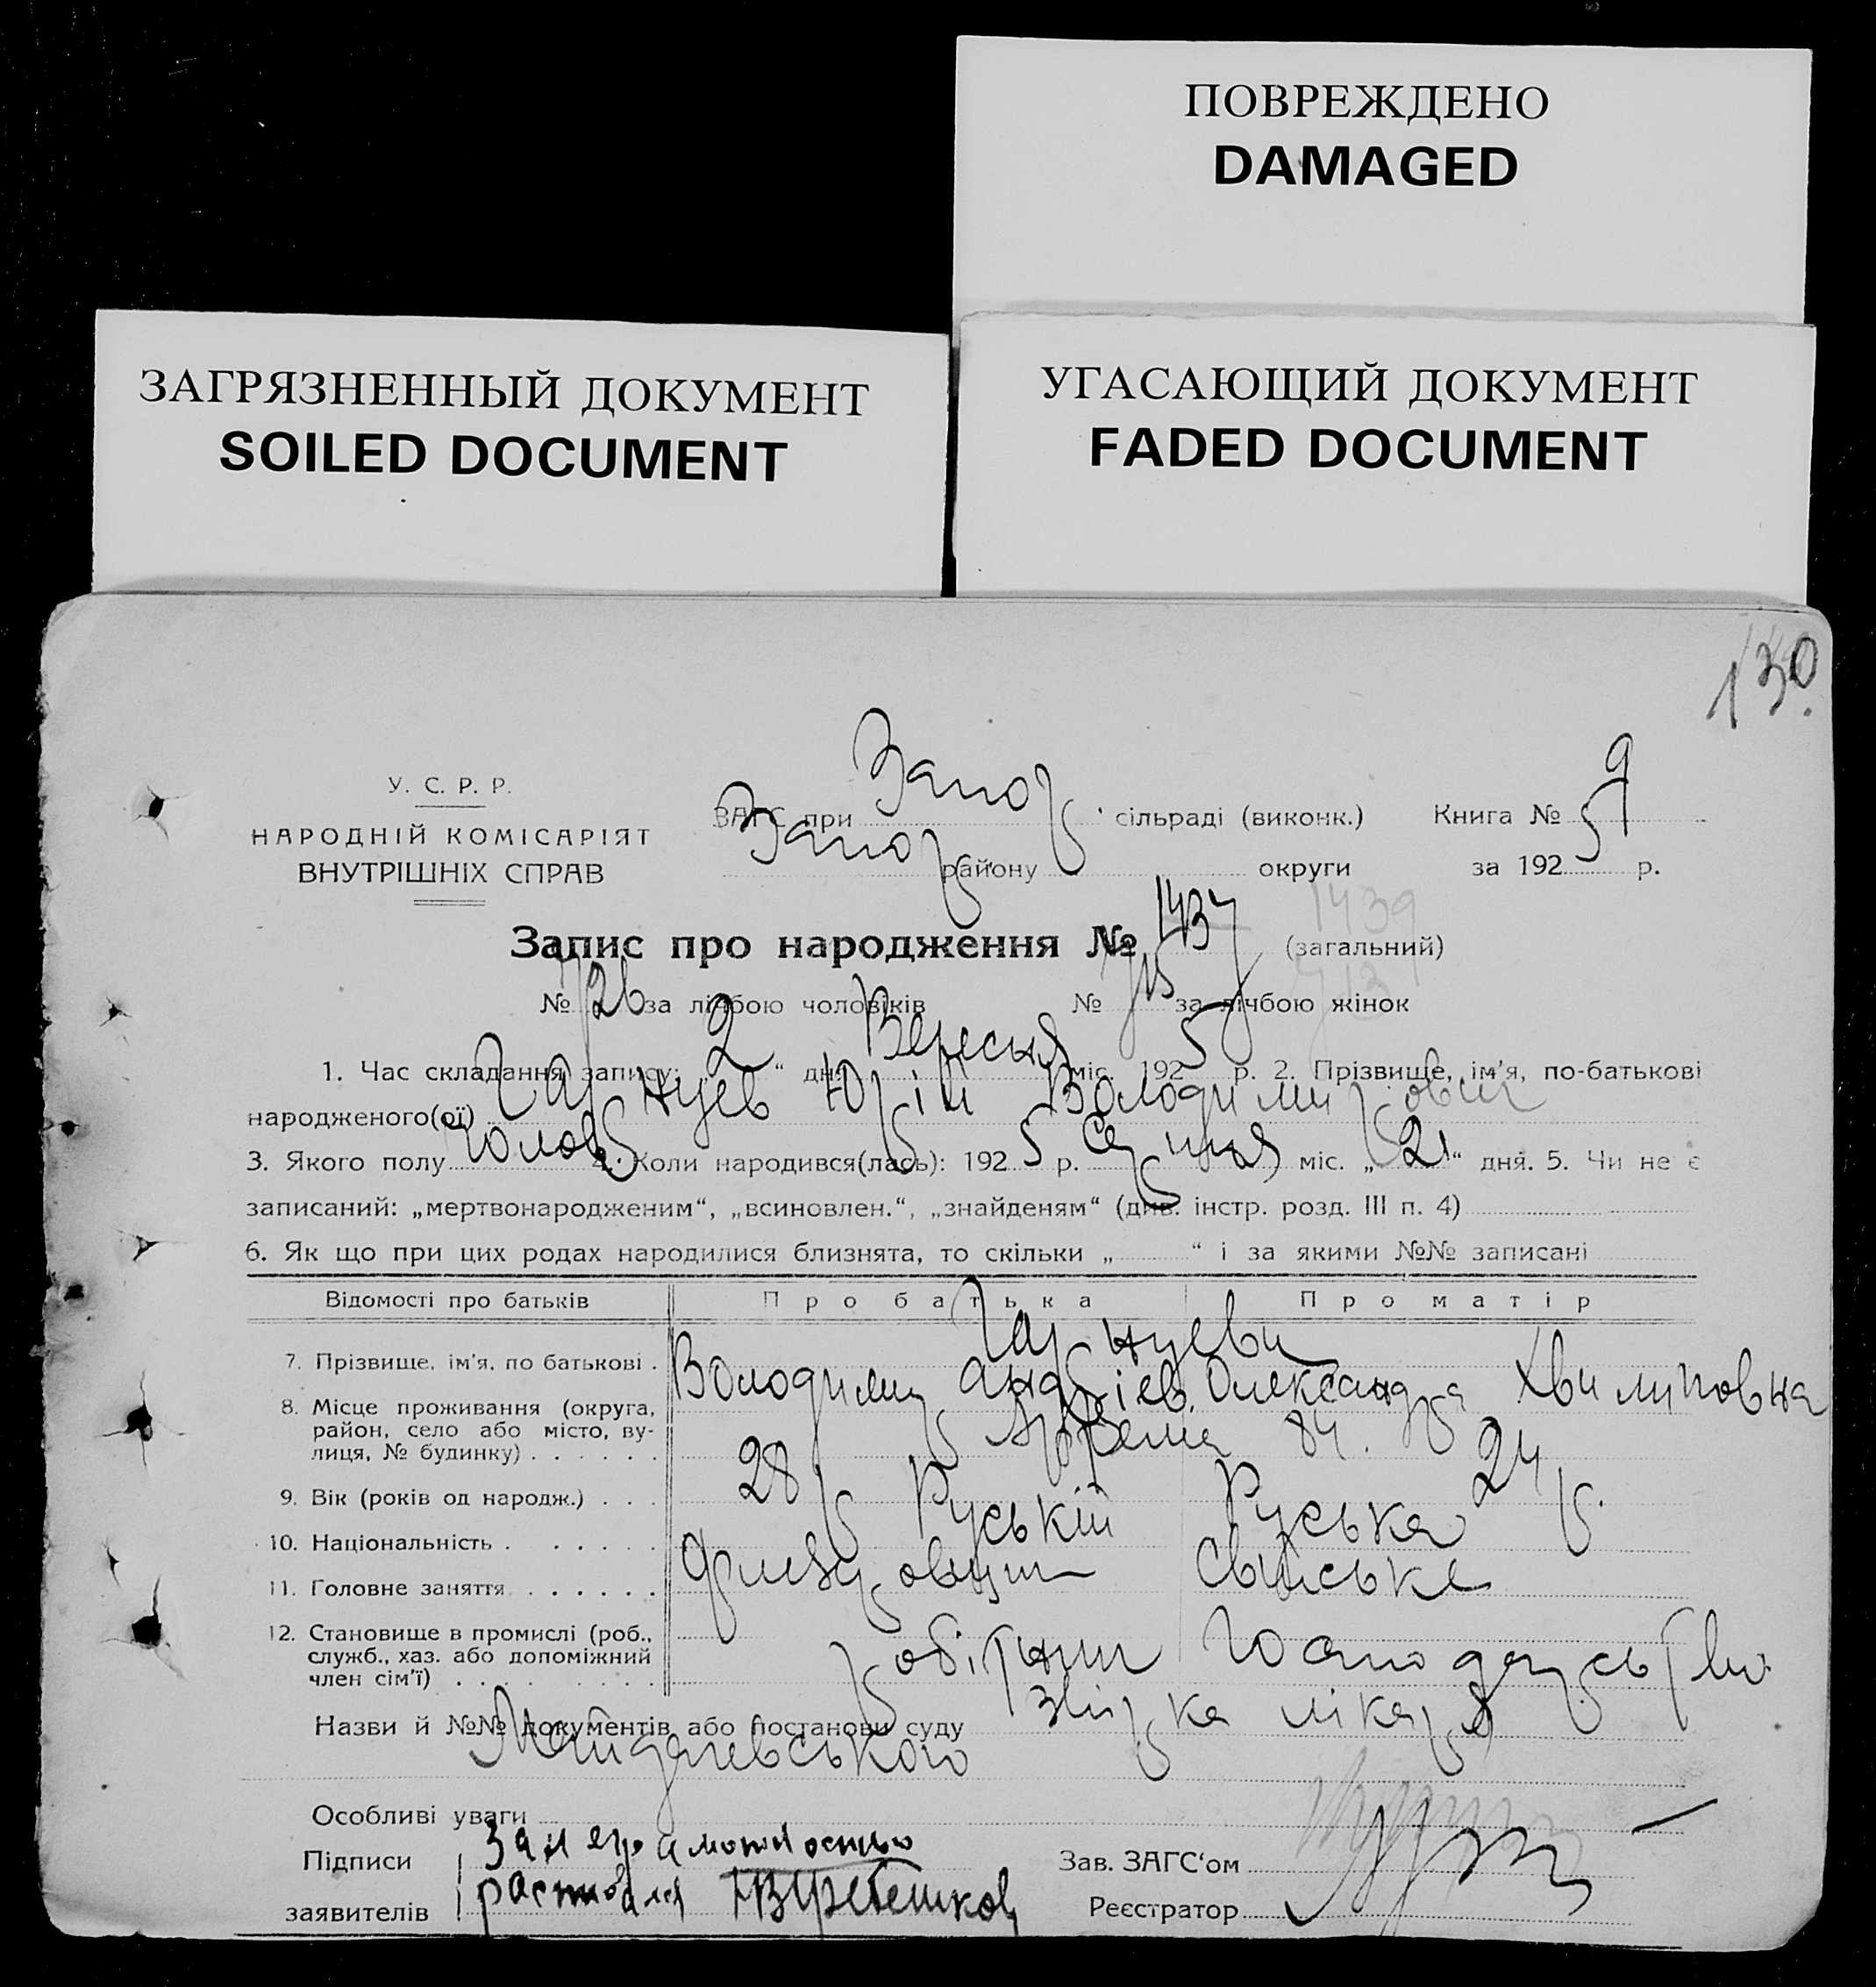 ПОВРЕЖДЕНО
DAMAGED
ЗАГРЯЗНЕННЫЙ ДОКУМЕНТ
SOILED DOCUMENT
УГАСАЮЩИЙ ДОКУМЕНТ
FADED DOCUMENT
130
У. С. Р. Р.
НАРОДНІЙ КОМІСАРІЯТ
ВНУТРІШНІХ СПРАВ
ЗАГС при Запор. сільраді (виконк.) Книга № 9
Запор. району округи за 192 5 р.
Запис про народження № 1437 (загальний) 1439
№ 726 за лічбою чоловіків № за лічбою жінок 713
1. Час складання запису: „ 2 “ дня Вересня міс. 192 5 р. 2. Прізвище, ім'я, по-батькові
народженого(ої) Юрій Володимирович
3. Якого полу чолов. 4. Коли народився(лась): 192 5 р. Серпня міс. „ 21 “ дня. 5. Чи не є
записаний: „мертвонародженим“, „всиновлен.“, „знайденям“ (див. інстр. розд. III п. 4)
6. Як що при цих родах народилися близнята, то скільки „ “ і за якими №№ записані
Відомості про батьків Про батька Про матір
7. Прізвище, ім'я, по батькові . Володимир Андріев. Олександра Хвилиповна
8. Місце проживання (округа,
район, село або місто, ву-
лиця, № будинку) . . . . . . Артема 84.
9. Вік (років од народж.) . . . 28 р. 24 р.
10. Національність . . . . . . Руський Руська
11. Головне заняття . . . . . .
12. Становище в промислі (роб.,
служб., хаз. або допоміжний
член сім'ї) . . . . . . . робітник
Назви й №№ документів або постанови суду лікаря
Особливі уваги
Підписи За неграмотностью
заявителів
Зав. ЗАГС'ом
Реєстратор